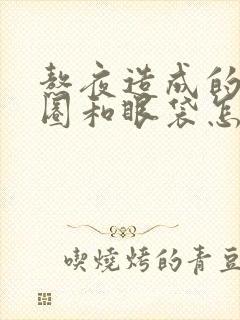 熬夜造成的
圈和眼袋怎
喫燒烤的青豆